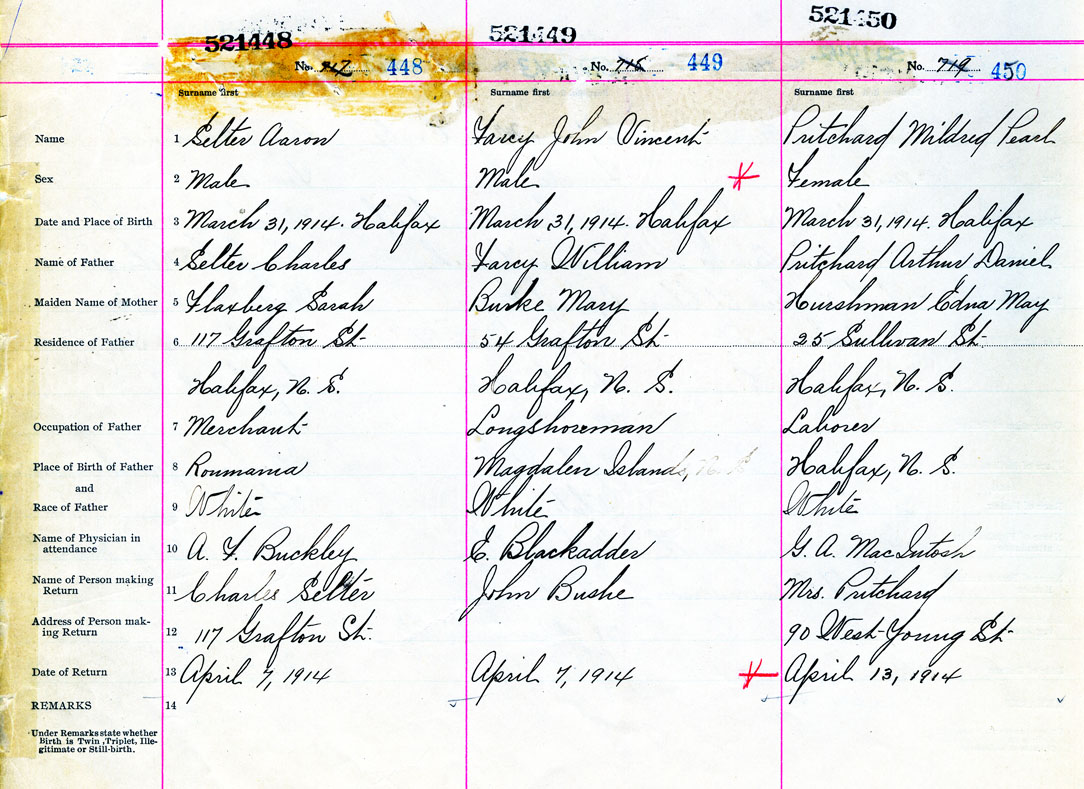 521448 521449 521450
No. 717 448 No. 718 449 No. 719 450
Surname first Surname first Surname first
Name 1 Selter Aaron Farcy John Vincent Pritchard Mildred Pearl
Sex 2 Male Male Female
Date and Place of Birth 3 March 31, 1914. Halifax March 31, 1914. Halifax March 31, 1914. Halifax
Name of Father 4 Selter Charles Farcy William Pritchard Arthur Daniel
Maiden Name of Mother 5 Flaxberg Sarah Burke Mary Hurshman Edna May
Residence of Father 6 117 Grafton St. 54 Grafton St. 25 Sullivan St.
Halifax, N. S. Halifax, N. S. Halifax, N. S.
Occupation of Father 7 Merchant Longshoreman Laborer
Place of Birth of Father 8 Roumania Magdalen Islands, Halifax, N. S.
and
Race of Father 9 White White White
Name of Physician in
attendance 10 A. F. Buckley E. Blackadder G. A. MacIntosh
Name of Person making
Return 11 Charles Selter John Bushe Mrs. Pritchard
Address of Person mak-
ing Return 12 117 Grafton St. 90 West Young St.
Date of Return 13 April 7, 1914 April 7, 1914 April 13, 1914
REMARKS 14
Under Remarks state whether
Birth is Twin, Triplet, Ille-
gitimate or Still-birth.